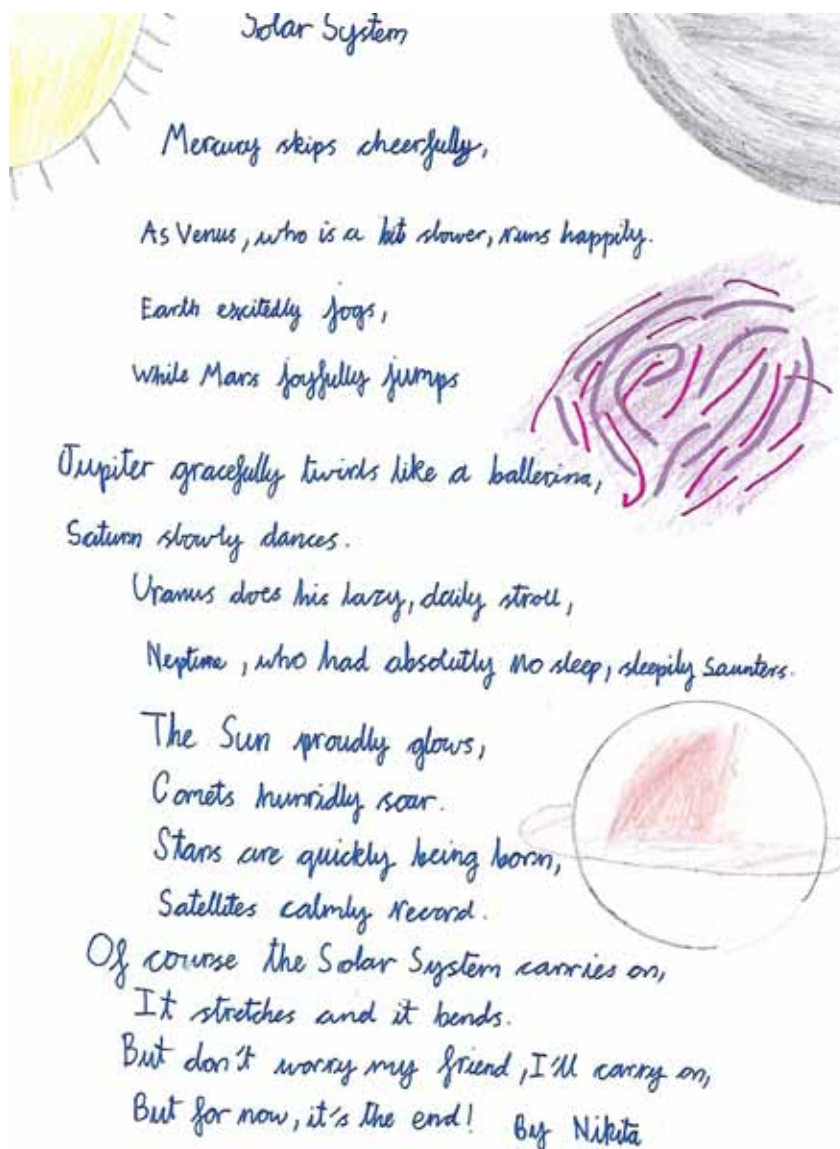 Solar System
Mercury skips cheerfully,
As Venus, who is a bit slower, runs happily.
Earth excitedly jogs,
While Mars joyfully jumps
Jupiter gracefully twirls like a ballerina,
Saturn slowly dances.
Uranus does his lazy, daily stroll,
Neptune, who had absolutly no sleep, sleepily saunters.
The Sun proudly glows,
Comets hurridly soar.
Stars are quickly being born,
Satellites calmly record.
Of course the Solar System carries on,
It stretches and it bends.
But don't worry my friend, I'll carry on,
But for now, it's the end! By Nikita